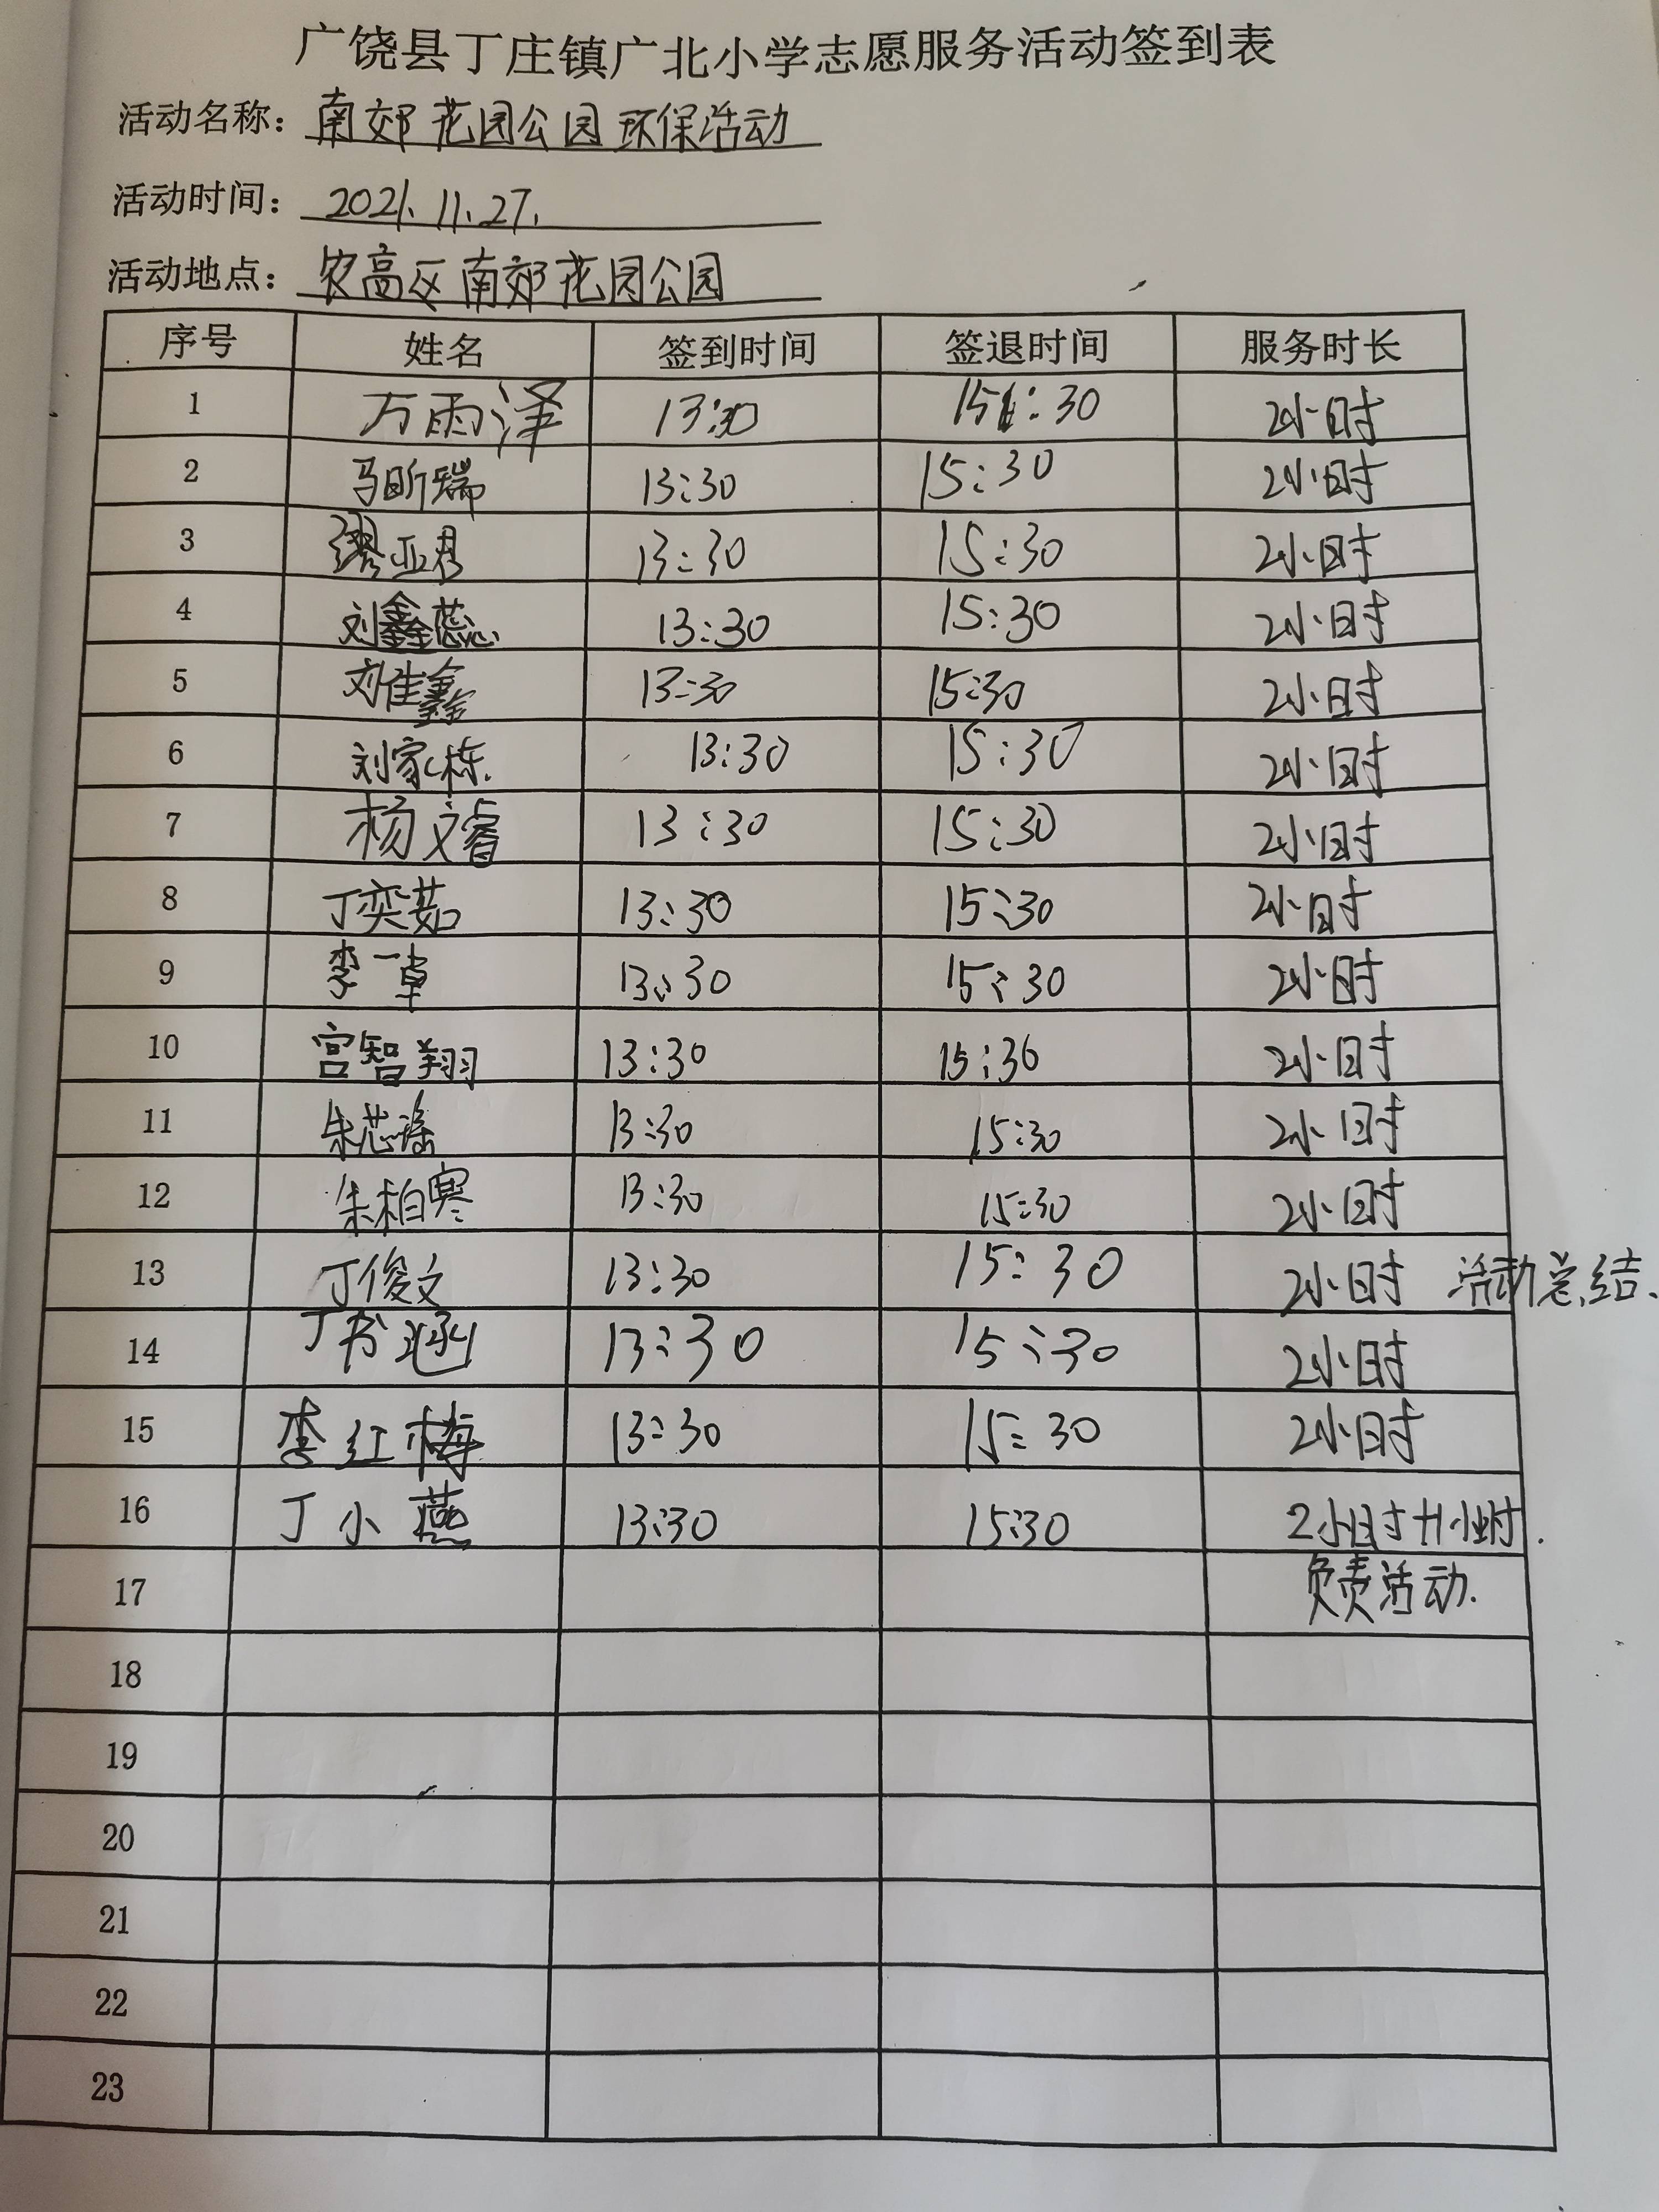 广饶县丁庄镇广北小学志愿服务活动签到表
活动名称：南郊花园公园环保活动
活动时间：2021.11.27.
活动地点：农高区南郊花园公园
序号 姓名 签到时间 签退时间 服务时长
1 万雨泽 13:30 15:30 2小时
2 马昕瑞 13:30 15:30 2小时
3 缪亚彤 13:30 15:30 2小时
4 刘鑫蕊 13:30 15:30 2小时
5 刘佳鑫 13:30 15:30 2小时
6 刘家栋 13:30 15:30 2小时
7 杨文睿 13:30 15:30 2小时
8 丁奕茹 13:30 15:30 2小时
9 李一卓 13:30 15:30 2小时
10 宫智翔 13:30 15:30 2小时
11 朱芯瑶 13:30 15:30 2小时
12 朱柏寒 13:30 15:30 2小时
13 丁俊文 13:30 15:30 2小时 活动总结.
14 丁书涵 13:30 15:30 2小时
15 李红梅 13:30 15:30 2小时
16 丁小燕 13:30 15:30 2小时+1小时.
17 负责活动.
18
19
20
21
22
23